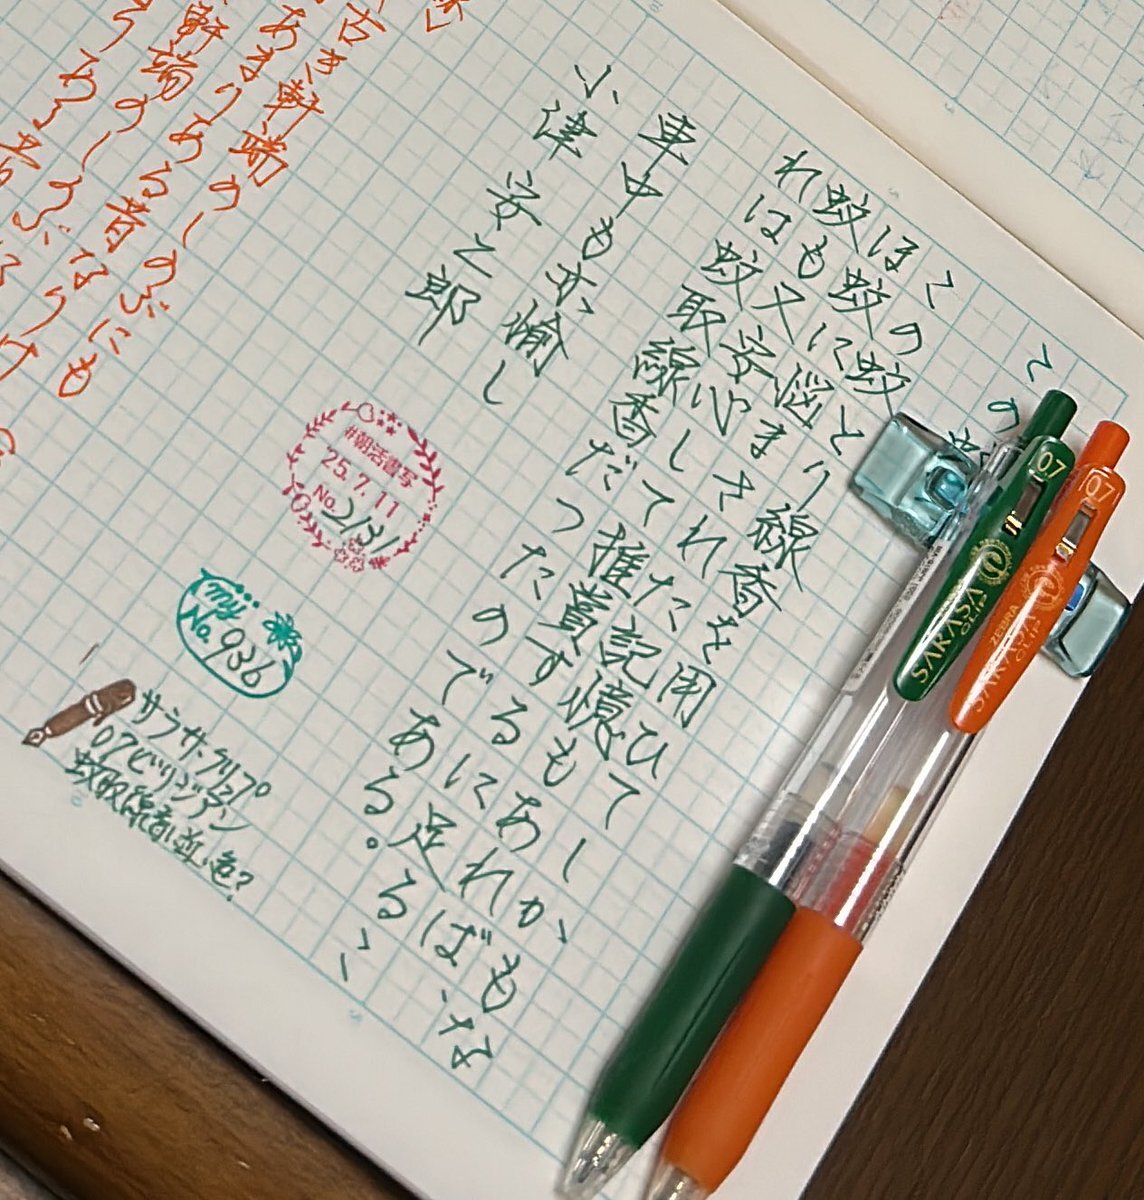 この蚊とり線香を用ひてしかもな
ほ蚊に悩まされた記憶もあれば、
蚊も又安心して推賞するに足るこ
れは蚊取線香だつたのである。
車中も亦愉し
小津 安之郎
古き軒端のしのぶにも
あまりある昔なりけ
#朝活書写
25.7.11
No.2131
my No.936
サラサクリップ
07ビリジアン
蚊取線香に近い色?
0.7
SARASA
CLIP
07
ZEBRA
SARASA
CLIP